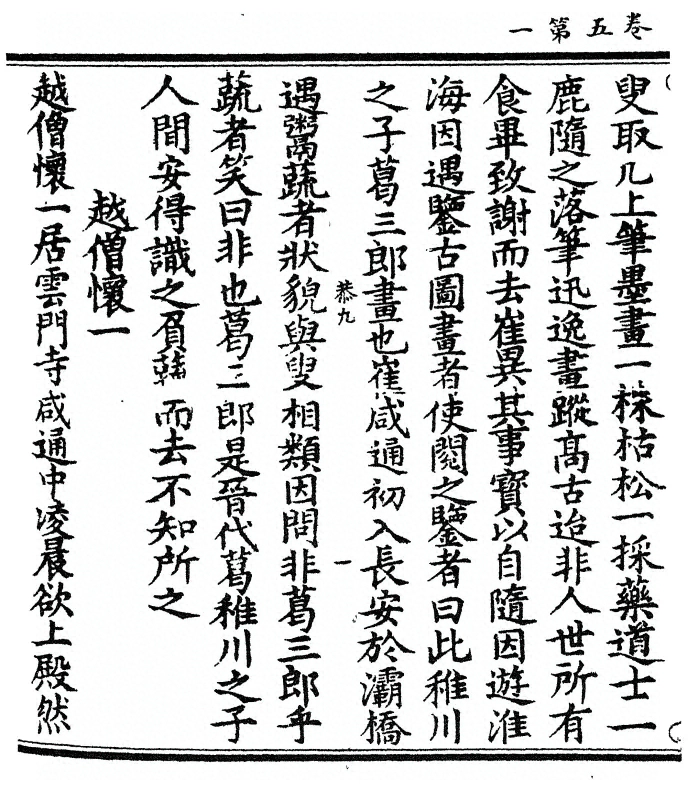 卷五第一
叟取几上筆墨畫一株枯松一採藥道士一
鹿隨之落筆迅逸畫蹤高古迨非人世所有
食畢致謝而去崔異其事寶以自隨因遊淮
海因遇鑒古圖畫者使閱之鑒者曰此稚川
之子葛三郎畫也崔咸通初入長安於灞橋
恭九
一
遇鬻蔬者狀貌與叟相類因問非葛三郎乎
蔬者笑曰非也葛三郎是晉代葛稚川之子
人間安得識之負蔬而去不知所之
越僧懷一
越僧懷一居雲門寺咸通中凌晨欲上殿然